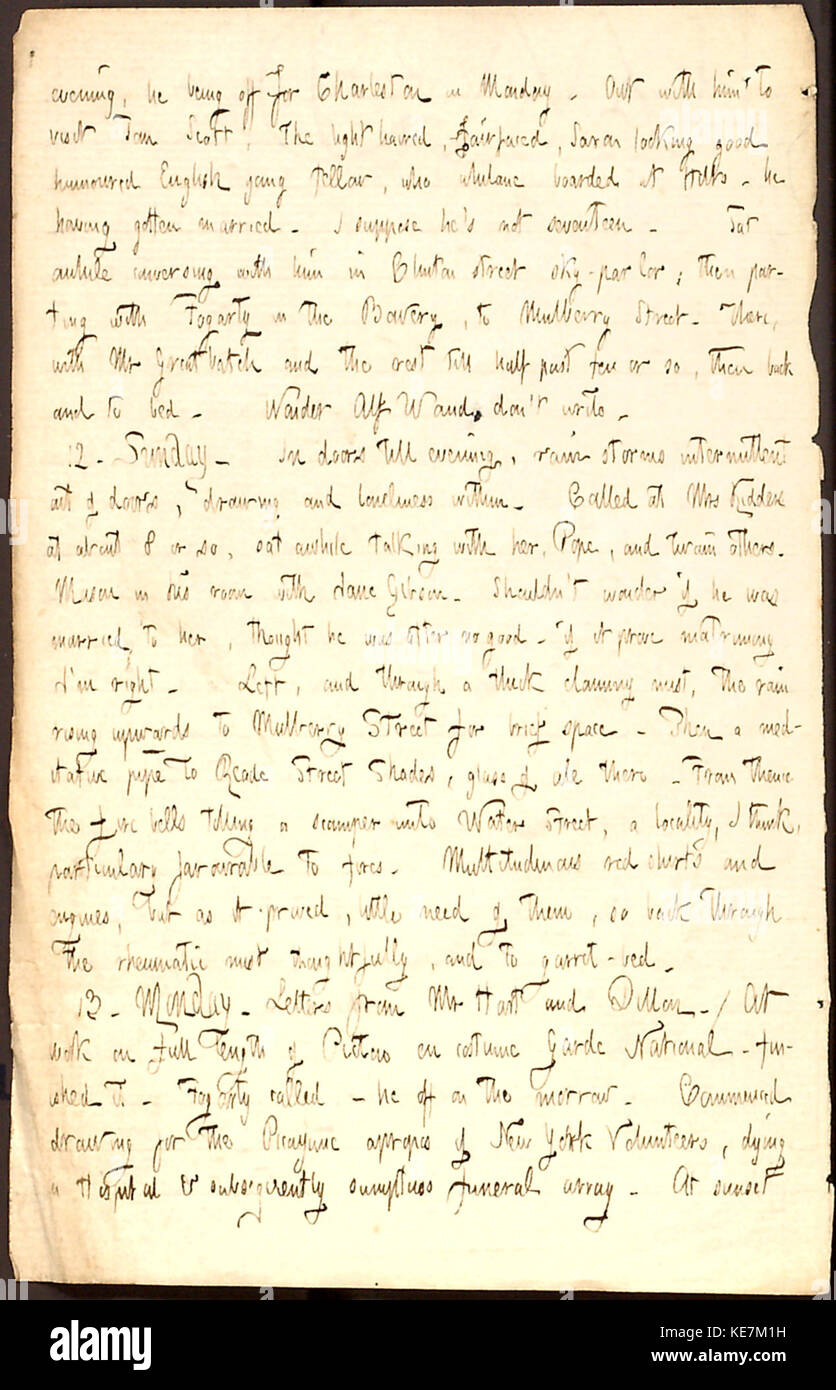 evening, he being off for Charleston on Monday. Out with him to
visit Tom Scott, The light haired, fairfaced, Saxon looking good
humoured English young fellow, who whilome boarded at _ he
having gotten married. I suppose he's not seventeen. Sat
awhile conversing with him in Clinton street sky-parlor; then par-
ting with Fogarty in the Bowery, to Mulberry Street. There,
with Mr Greatbatch and the rest till half past ten or so, then back
and to bed. Wonder Alf Waud don't write.
12. Sunday. In doors till evening, rain storms intermittent
out of doors, drawing and loneliness within. Called at Mrs Kidder
at about 8 or so, sat awhile talking with her, Pope, and twain others.
Mason in his room with Jane Gibson. Shouldn't wonder if he was
married to her, thought he was after no good. if it prove matrimony
I'm right. Left, and through a thick clammy mist, the rain
rising upwards to Mulberry Street for brief space. Then a med-
itative pipe to Reade Street Shades, glass of ale there. From thence
the fire bells tolling a scamper unto Water Street, a locality, I think,
particulary favourable to fires. Multitudinous red shirts and
engines, but as it proved, little need of them, so back through
the rheumatic mist thoughtfully, and to garret-bed.
13. Monday. Letters from Mr Hart and Dillon. / At
work on full length of Picton en costume Garde National. fin-
ished it. Fogarty called - he off on the morrow. Commenced
drawing for the Picayune apropos of New York Volunteers, dying
a Hospital & subsequently sumptuos funeral array. At sunset
alamy
KE7M1H
www.alamy.com